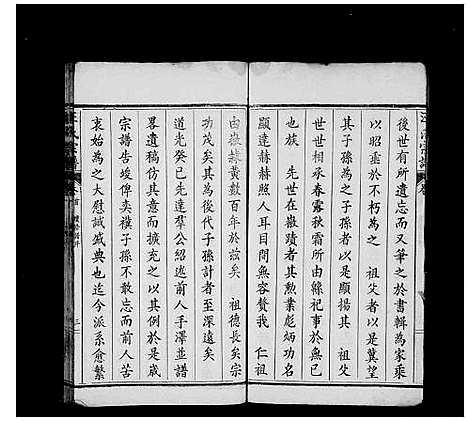 後世有所遺忘而又筆之於書輯為家乘
以昭垂於不朽為之　祖父者以是冀望
其子孫為之子孫者以是顯揚其　祖父
世世相承春露秋霜所由綿祀事於無已
也族　先世在嶽瀆者其勲業彪炳功德
顯達赫赫照人耳目間無容贅我　仁祖
由嶽隸黄數百年於兹矣　祖德長矣宗
功茂矣其為後代子孫計者至深遠矣
道光癸巳先達羣公紹述前人手澤並譜
畧遺稿仿其意而擴充之以其例於是歲
宗譜告竣俾奕禩子孫不敢忘而前人
哀始為之大慰誠盛典也迄今派系愈繁
氏宗譜
卷首
三